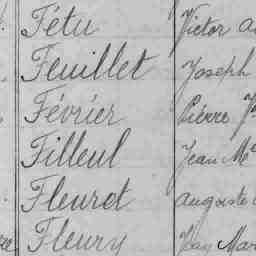 Tétu Victor
Feuillet Joseph
Février Pierre
Filleul Jean M
Fleuret Auguste
Fleury Jean Mar